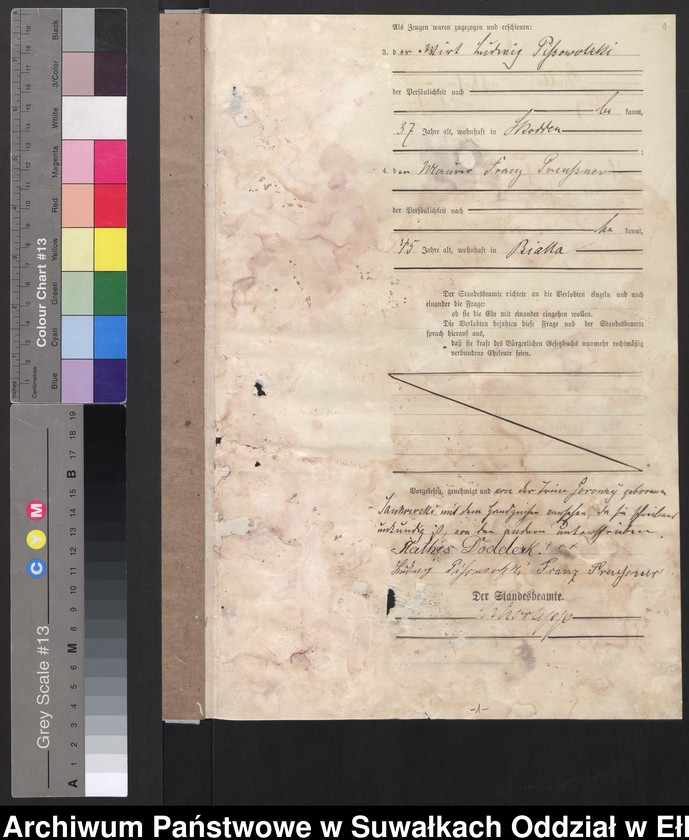 Als Zeugen waren zugezogen und erschienen:
3. der Wirt Ludwig Pissowotzki
der Persönlichkeit nach
be kannt,
37 Jahre alt, wohnhaft in Skodden
4. der Maurer Franz Preußner
der Persönlichkeit nach
be kannt,
45 Jahre alt, wohnhaft in Bialla
Der Standesbeamte richtete an die Verlobten einzeln und nach
einander die Frage:
ob sie die Ehe mit einander eingehen wollen.
Die Verlobten bejahten diese Frage und der Standesbeamte
sprach hierauf aus,
daß sie kraft des Bürgerlichen Gesetzbuchs nunmehr rechtmäßig
verbundene Eheleute seien.
Vorgelesen, genehmigt und von der geborenen
mit dem Handzeichen versehen, da sie schreibens
unkundig ist, von den andern unterschrieben.
Mathes Doddeck
Ludwig Pissowotzki Franz Preußner
Der Standesbeamte.
-1-
Colour Chart #13
Blue
Cyan
Green
Yellow
Red
Magenta
White
3/Color
Black
Inches
Centimetres
Grey Scale #13
C Y M
A 1 2 3 4 5 6 M 8 9 10 11 12 13 14 15 B 17 18 19
Archiwum Państwowe w Suwałkach Oddział w Eł